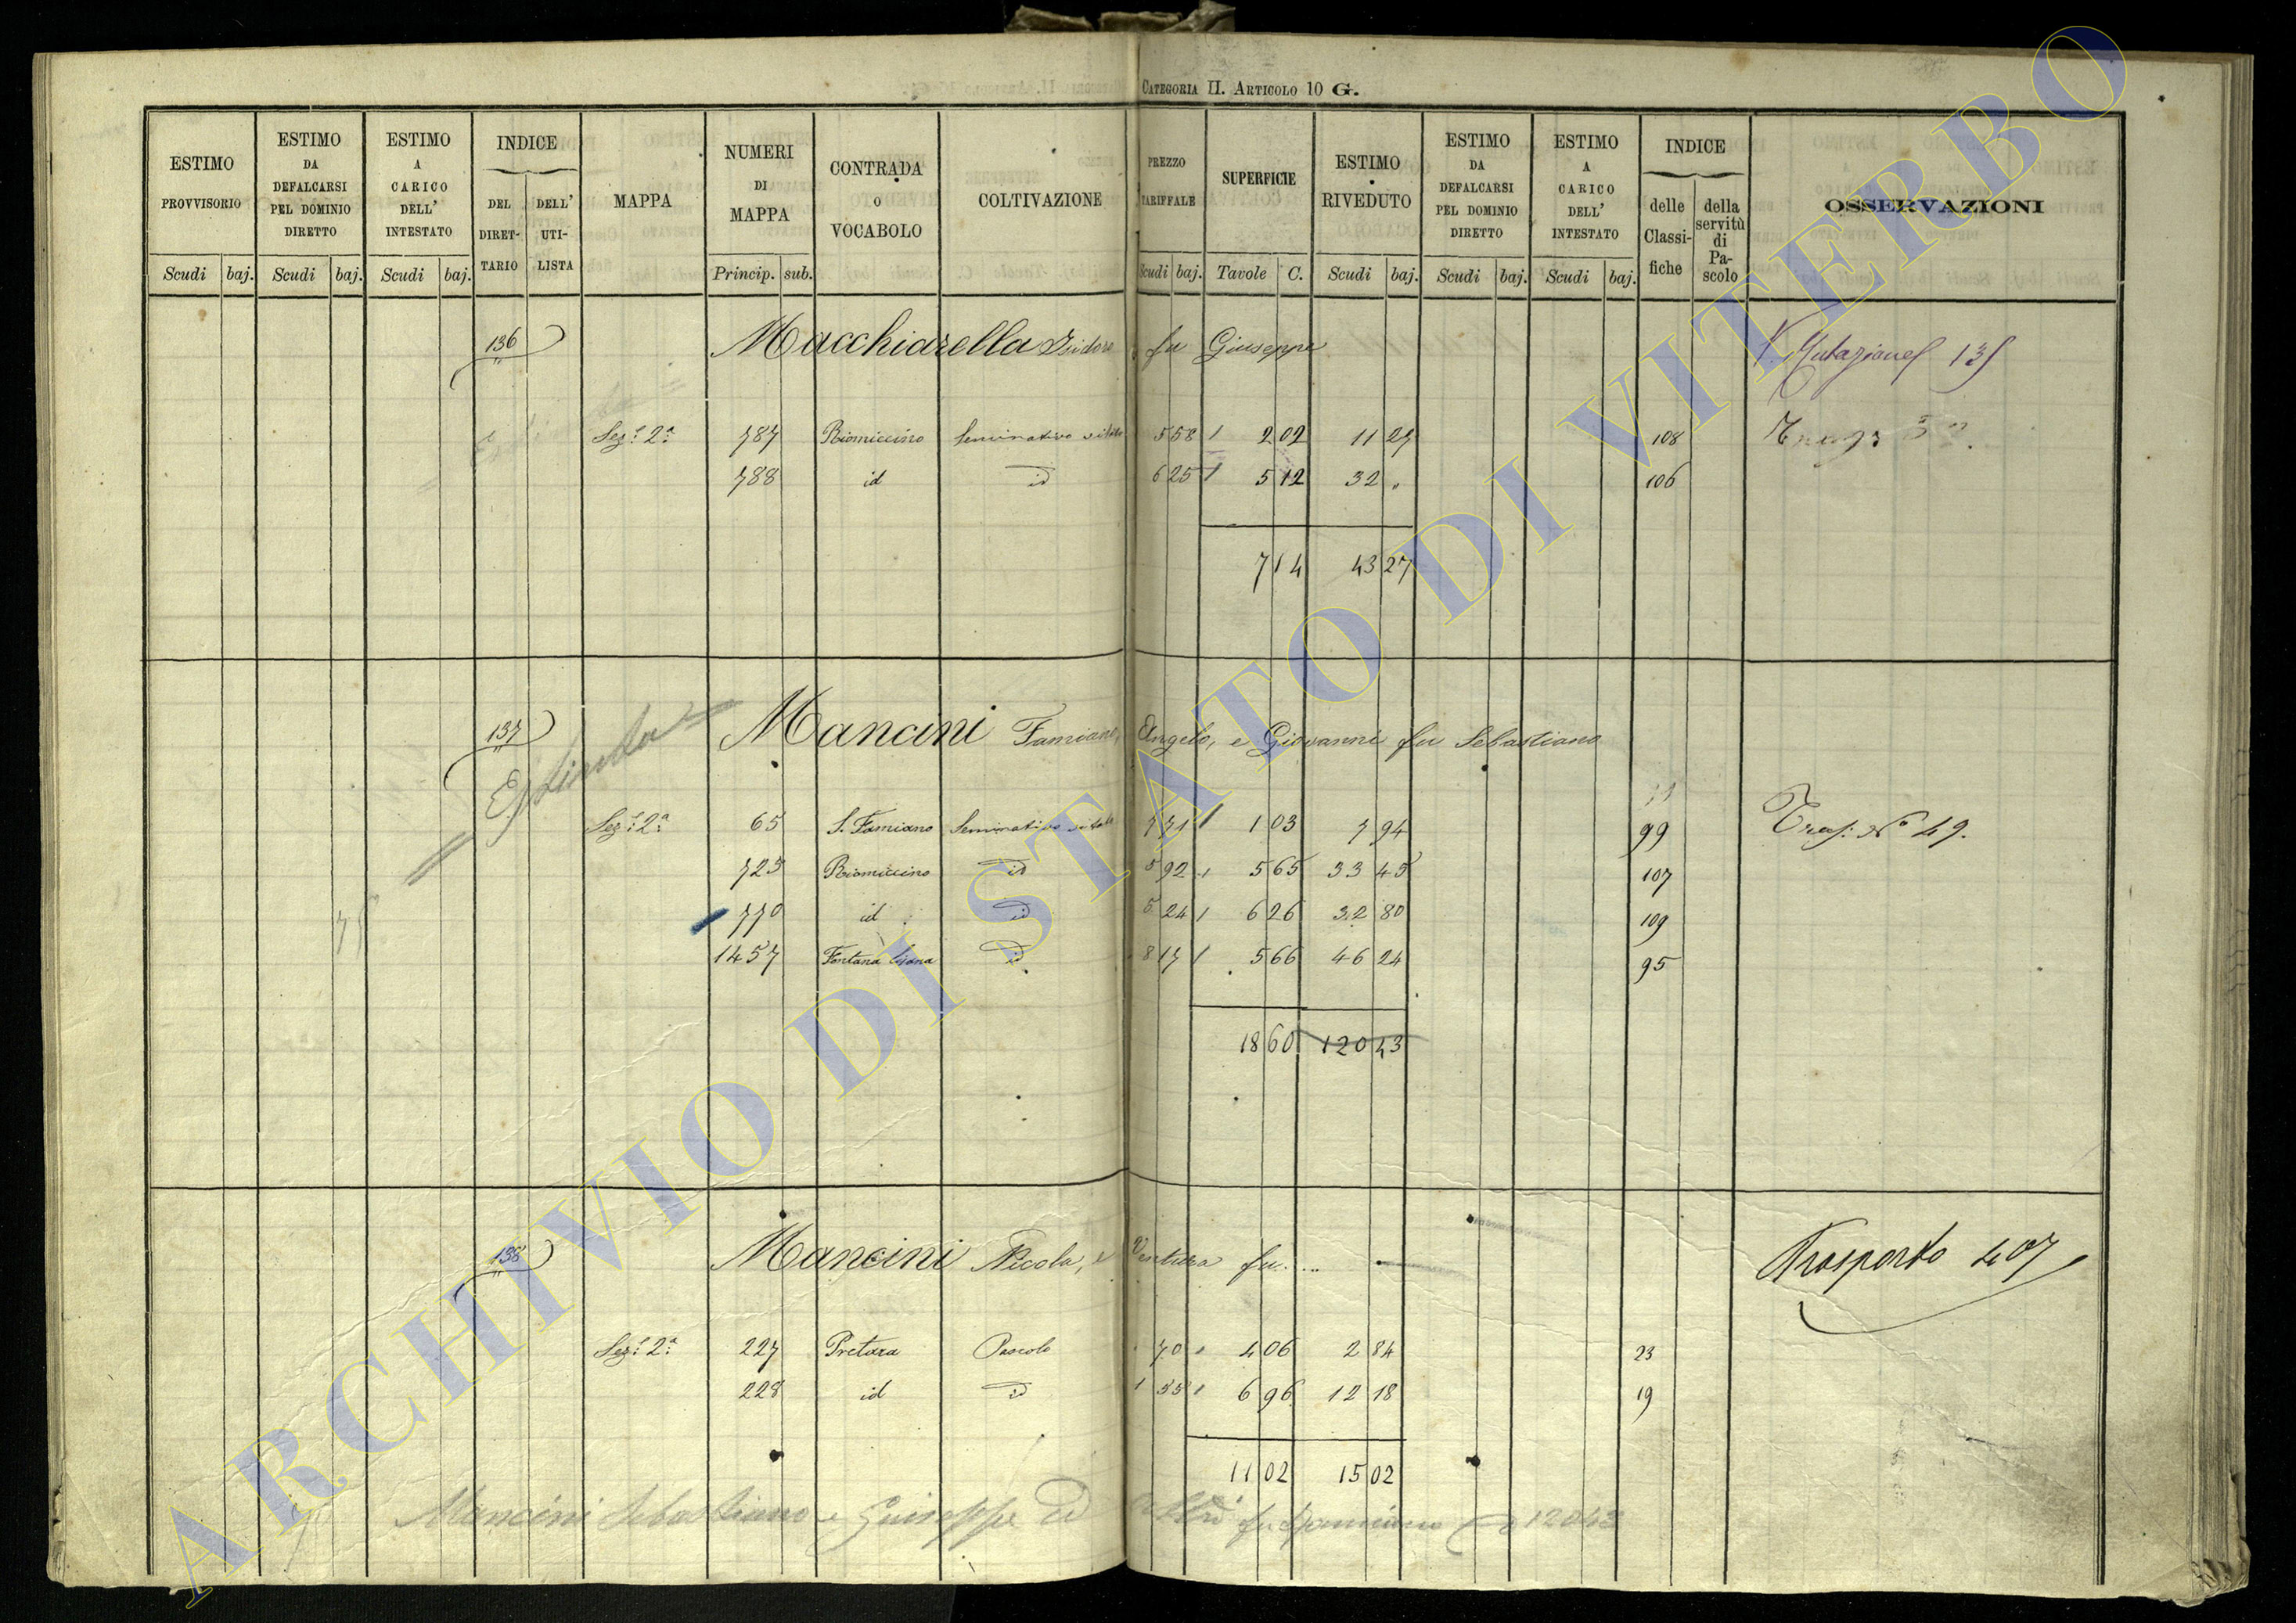 CATEGORIA II. ARTICOLO 10 G.
ESTIMO PROVVISORIO
ESTIMO DA DEFALCARSI PEL DOMINIO DIRETTO
ESTIMO A CARICO DELL' INTESTATO
INDICE
DEL DIRET-TARIO
DELL' UTI-LISTA
MAPPA
NUMERI DI MAPPA
CONTRADA O VOCABOLO
COLTIVAZIONE
PREZZO TARIFFALE
SUPERFICIE
ESTIMO RIVEDUTO
ESTIMO DA DEFALCARSI PEL DOMINIO DIRETTO
ESTIMO A CARICO DELL' INTESTATO
INDICE
delle Classi-fiche
della servitù di Pa-scolo
OSSERVAZIONI
Scudi baj. Scudi baj. Scudi baj. Princip. sub. Scudi baj. Tavole C. Scudi baj. Scudi baj. Scudi baj.
136 Macchiarella Isidoro fu Giuseppe
Sez: 2a 787 Riomiccino Seminativo vitato 5 58 2 02 11 27 108
788 id id 6 25 5 12 32 " 106
7 14 43 27
137 Mancini Famiano, Angelo, e Giovanni fu Sebastiano
Estinta
Sez: 2a 65 S. Famiano Seminativo vitato 7 71 1 03 7 94 99 Tras: No 49.
723 Riomiccino id 5 92 5 65 33 45 107
770 id id 5 24 6 26 32 80 109
1457 Fontana id 8 17 5 66 46 24 95
18 60 120 43
138 Mancini Nicola, e Ventura fu.... Trasporto 407
Sez: 2a 227 Pretara Pascolo 70 4 06 2 84 23
228 id id 1 55 6 96 12 18 19
11 02 15 02
Mancini Sebastiano e Guiseppe ed altri fu 12043
ARCHIVIO DI STATO DI VITERBO